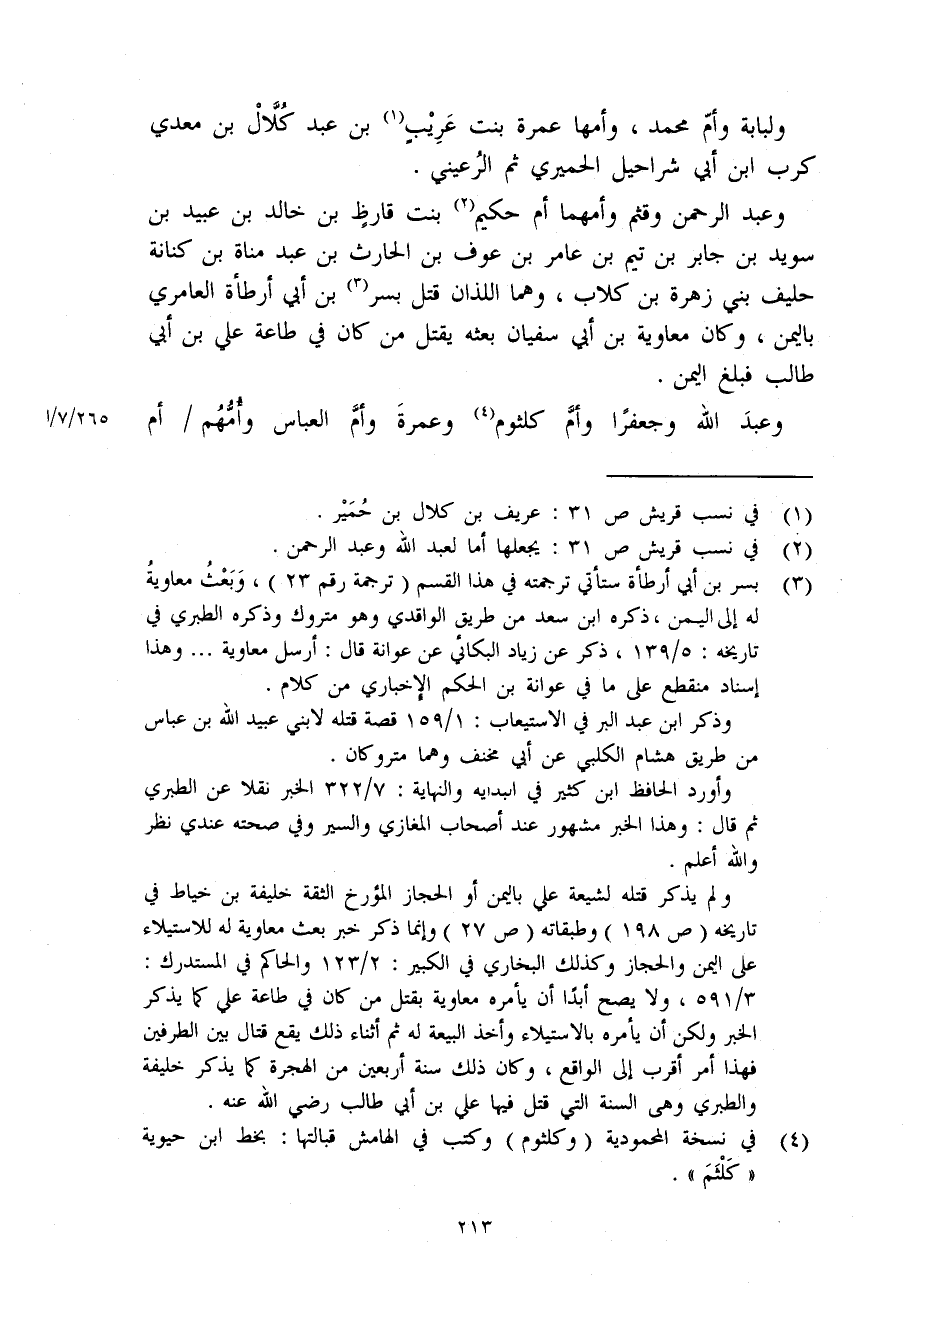 ولبابة وأمّ محمد ، وأمها عمرة بنت عَرِيْبٍ(١) بن عبد كُلَّالْ بن معدي
كرب ابن أبي شراحيل الحميري ثم الرُعيني .
وعبد الرحمن وقثم وأمهما أم حكيم(٢) بنت قارظٍ بن خالد بن عبيد بن
سويد بن جابر بن تيم بن عامر بن عوف بن الحارث بن عبد مناة بن كنانة
حليف بني زهرة بن كلاب ، وهما اللذان قتل بسر(٣) بن أبي أرطأة العامري
باليمن ، وكان معاوية بن أبي سفيان بعثه يقتل من كان في طاعة علي بن أبي
طالب فبلغ اليمن .
وعبدَ الله وجعفرًا وأمَّ كلثوم(٤) وعمرةَ وأمَّ العباس وأُمُّهُم / أم ١/٧/٢٦٥
(١) في نسب قريش ص ٣١ : عريف بن كلال بن حُمَيْر .
(٢) في نسب قريش ص ٣١ : يجعلها أما لعبد الله وعبد الرحمن .
(٣) بسر بن أبي أرطأة ستأتي ترجمته في هذا القسم ( ترجمة رقم ٢٣ ) ، وَبَعْثُ معاويةُ
له إلى اليمن ، ذكره ابن سعد من طريق الواقدي وهو متروك وذكره الطبري في
تاريخه : ١٣٩/٥ ، ذكر عن زياد البكائي عن عوانة قال : أرسل معاوية ... وهذا
إسناد منقطع على ما في عوانة بن الحكم الإخباري من كلام .
وذكر ابن عبد البر في الاستيعاب : ١٥٩/١ قصة قتله لابني عبيد الله بن عباس
من طريق هشام الكلبي عن أبي مخنف وهما متروكان .
وأورد الحافظ ابن كثير في البدايه والنهاية : ٣٢٢/٧ الخبر نقلا عن الطبري
ثم قال : وهذا الخبر مشهور عند أصحاب المغازي والسير وفي صحته عندي نظر
والله أعلم .
ولم يذكر قتله لشيعة علي باليمن أو الحجاز المؤرخ الثقة خليفة بن خياط في
تاريخه ( ص ١٩٨ ) وطبقاته ( ص ٢٧ ) وإنما ذكر خبر بعث معاوية له للاستيلاء
على اليمن والحجاز وكذلك البخاري في الكبير : ١٢٣/٢ والحاكم في المستدرك :
٥٩١/٣ ، ولا يصح أبدًا أن يأمره معاوية بقتل من كان في طاعة علي كما يذكر
الخبر ولكن أن يأمره بالاستيلاء وأخذ البيعة له ثم أثناء ذلك يقع قتال بين الطرفين
فهذا أمر أقرب إلى الواقع ، وكان ذلك سنة أربعين من الهجرة كما يذكر خليفة
والطبري وهى السنة التي قتل فيها علي بن أبي طالب رضي الله عنه .
(٤) في نسخة المحمودية ( وكلثوم ) وكتب في الهامش قبالتها : بخط ابن حيوية
« كَلْثَمَ » .
٢١٣